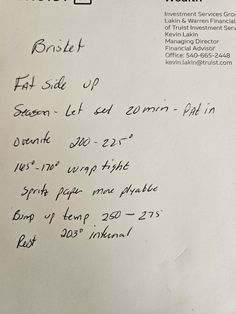 Wealth
Investment Services Gro
Lakin & Warren Financial
of Truist Investment Serv
Kevin Lakin
Managing Director
Financial Advisor
Office: 540-665-2448
kevin.lakin@truist.com
Brisket
FAt Side up
Season - Let set 20 min - PAt in
Overnite 200-225°
165°-170° wrap tight
Spritz paper more plyable
Bump up temp 250 - 275
Rest 203° internal